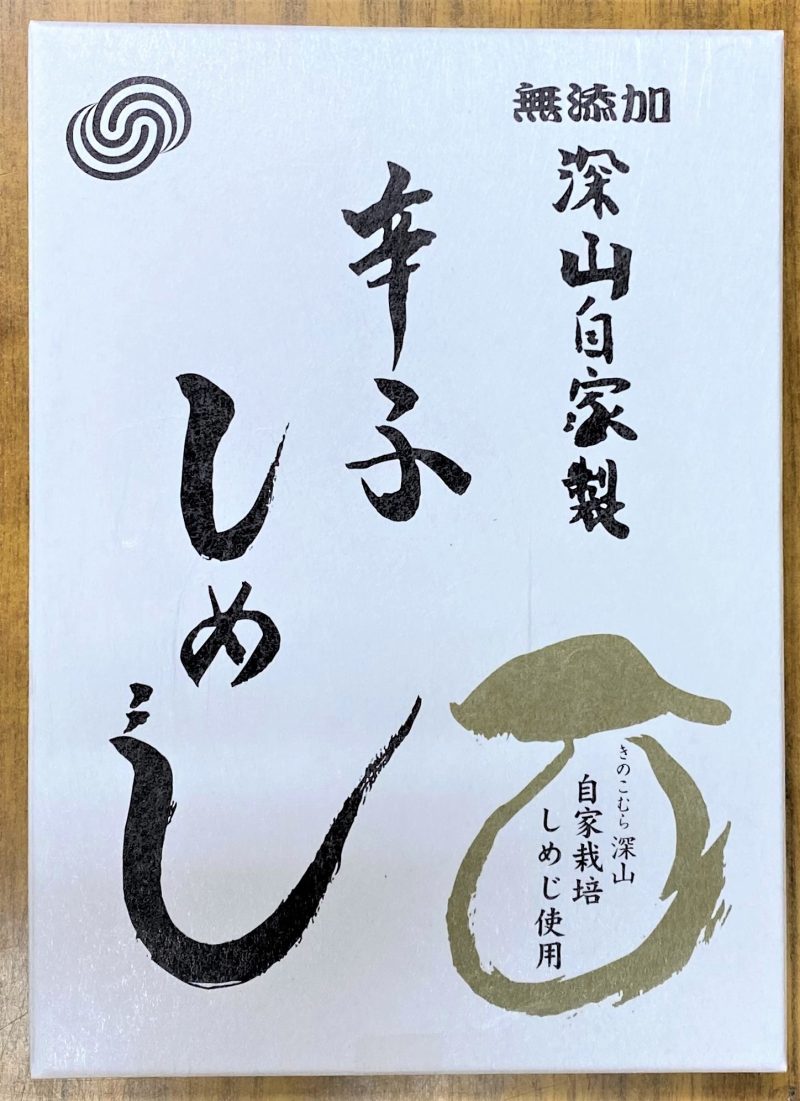 無添加
深山自家製
辛子
しめじ
きのこむら深山
自家栽培
しめじ使用